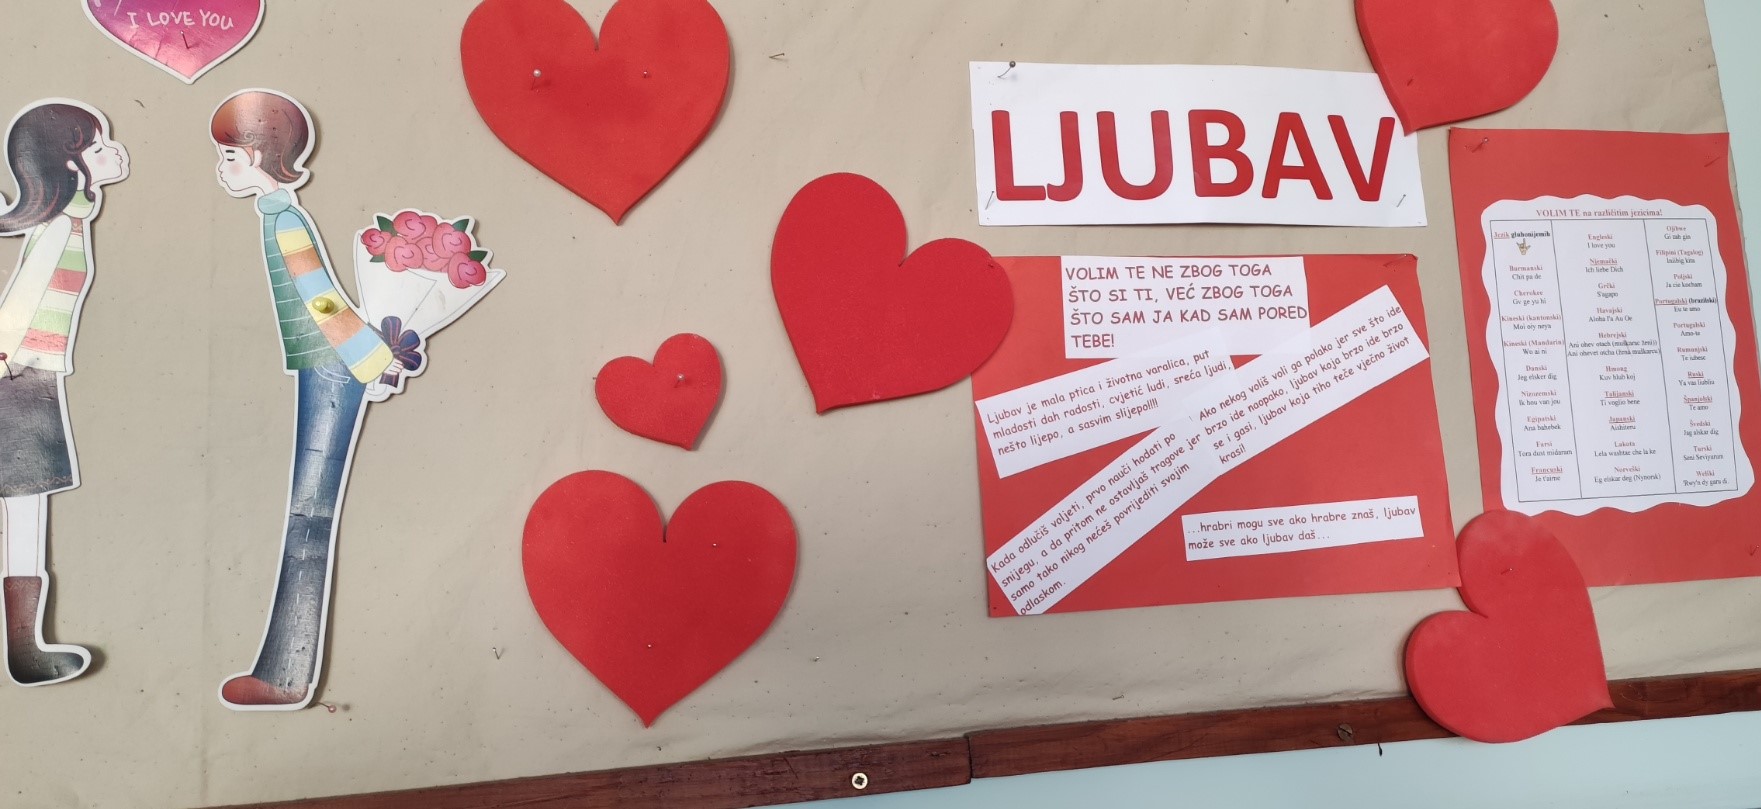 I LOVE YOU
LJUBAV
VOLIM TE NE ZBOG TOGA
ŠTO SI TI, VEĆ ZBOG TOGA
ŠTO SAM JA KAD SAM PORED
TEBE!
Ljubav je mala ptica i životna varalica, put
mladosti dah radosti, cvjetić ludi, sreća ljudi,
nešto lijepo, a sasvim slijepo!!!!
Ako nekog voliš voli ga polako jer sve što ide
brzo ide naopako, ljubav koja brzo ide brzo
se i gasi, ljubav koja tiho teče vječno život
krasi!
Kada odlučiš voljeti, prvo nauči hodati po
snijegu, a da pritom ne ostavljaš tragove jer
samo tako nikog nećeš povrijediti svojim
odlaskom.
...hrabri mogu sve ako hrabre znaš, ljubav
može sve ako ljubav daš...
VOLIM TE na različitim jezicima!
Jezik gluhonijemih
Burmanski
Chit pa de
Cherokee
Gv ge yu hi
Kineski (kantonski)
Moi oiy neya
Kineski (Mandarin)
Wo ai ni
Danski
Jeg elsker dig
Nizozemski
Ik hou van jou
Egipatski
Ana bahebek
Farsi
Tora dust midaram
Francuski
Je t'aime
Engleski
I love you
Njemački
Ich liebe Dich
Grčki
S'agapo
Havajski
Aloha I'a Au Oe
Hebrejski
Ani ohev otach (muškarac ženi)
Ani ohevet otcha (žena muškarcu)
Hmong
Kuv hlub koj
Talijanski
Ti voglio bene
Japanski
Aishiteru
Lakota
Norveški
Eg elskar deg (Nynorsk)
Ojibwe
Gi zah gin
Filipini (Tagalog)
Iniibig kita
Poljski
Ja cie kocham
Portugalski (brazilski)
Eu te amo
Portugalski
Amo-te
Rumunjski
Te iubesc
Ruski
Ya vas liubliu
Španjolski
Te amo
Švedski
Jag alskar dig
Turski
Seni Seviyorum
Welški
'Rwy'n dy garu di